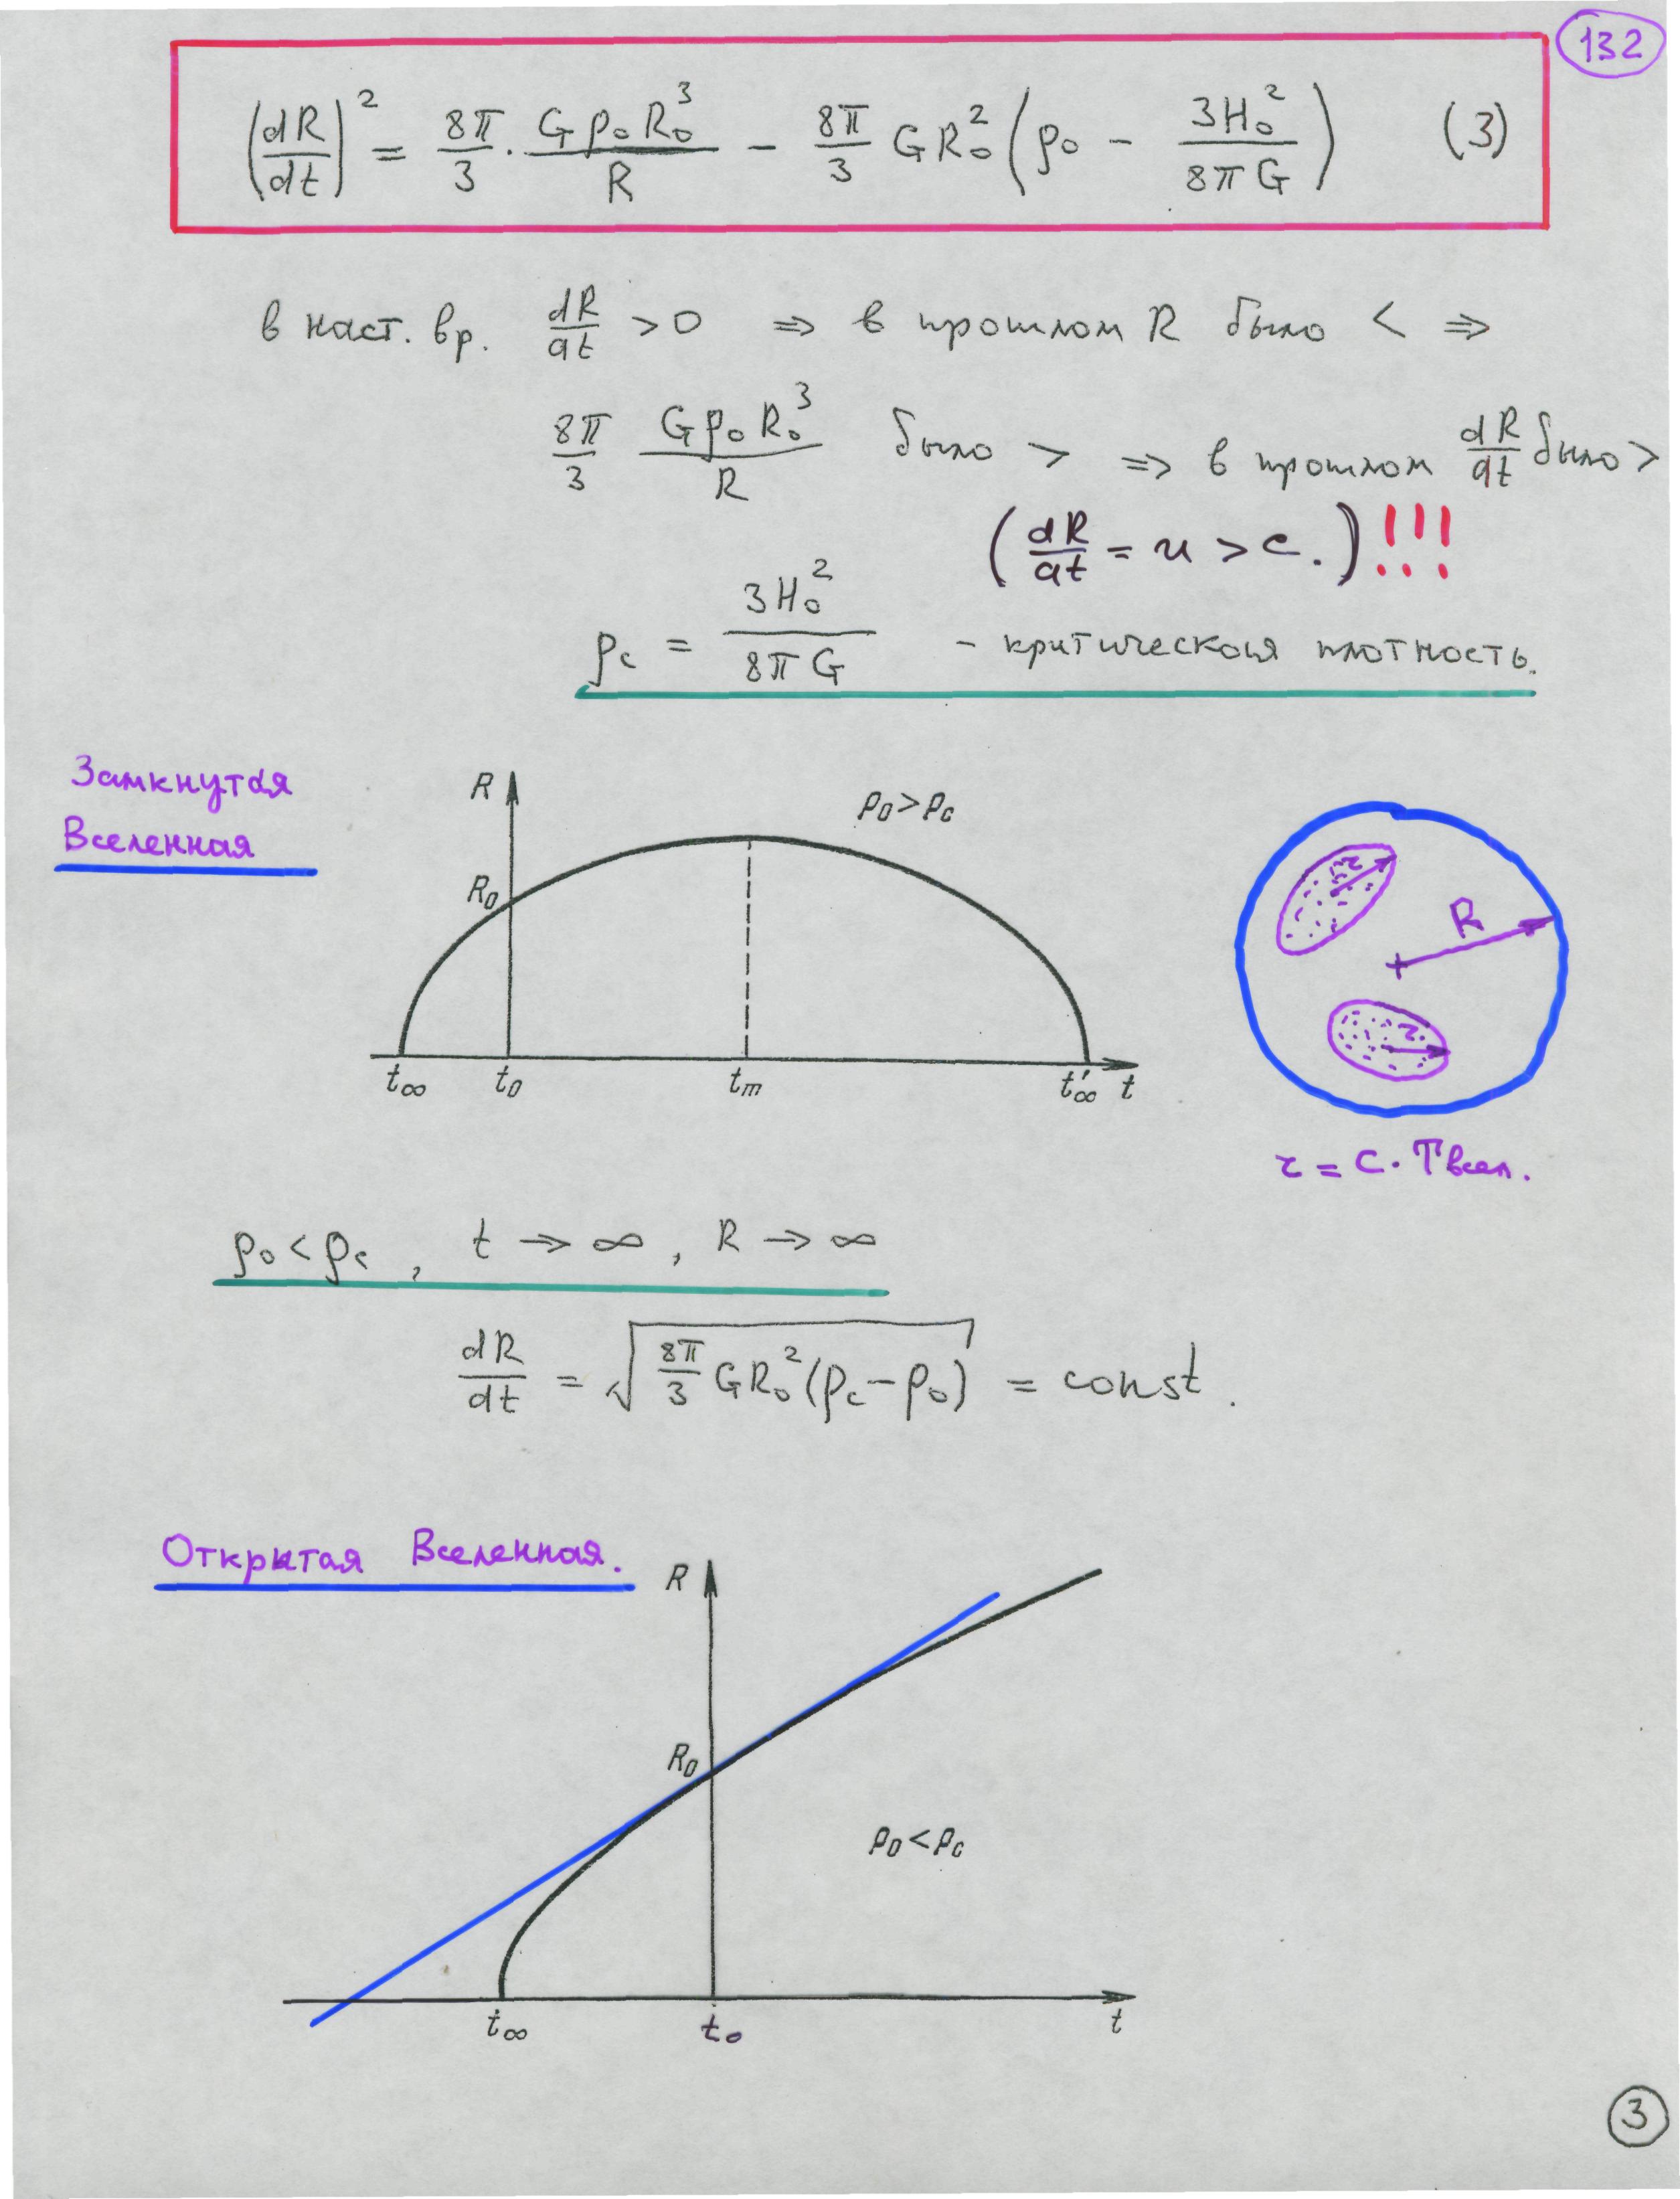 132
(dR/dt)² = 8π/3 · Gρ₀R₀³/R − 8π/3 GR₀² (ρ₀ − 3H₀²/8πG) (3)
в наст. вр. dR/dt > 0 ⇒ в прошлом R было < ⇒
8π/3 Gρ₀R₀³/R было > ⇒ в прошлом dR/dt было >
(dR/dt = u > c.) !!!
ρc = 3H₀²/8πG – критическая плотность.
Замкнутая
Вселенная
R
ρ₀ > ρc
R₀
t∞ t₀ tm t'∞ t
r
R
r
r = c · Tвсел.
ρ₀ < ρc , t → ∞ , R → ∞
dR/dt = √(8π/3 GR₀²(ρc − ρ₀)) = const.
Открытая Вселенная.
R
R₀
ρ₀ < ρc
t∞ t₀ t
3